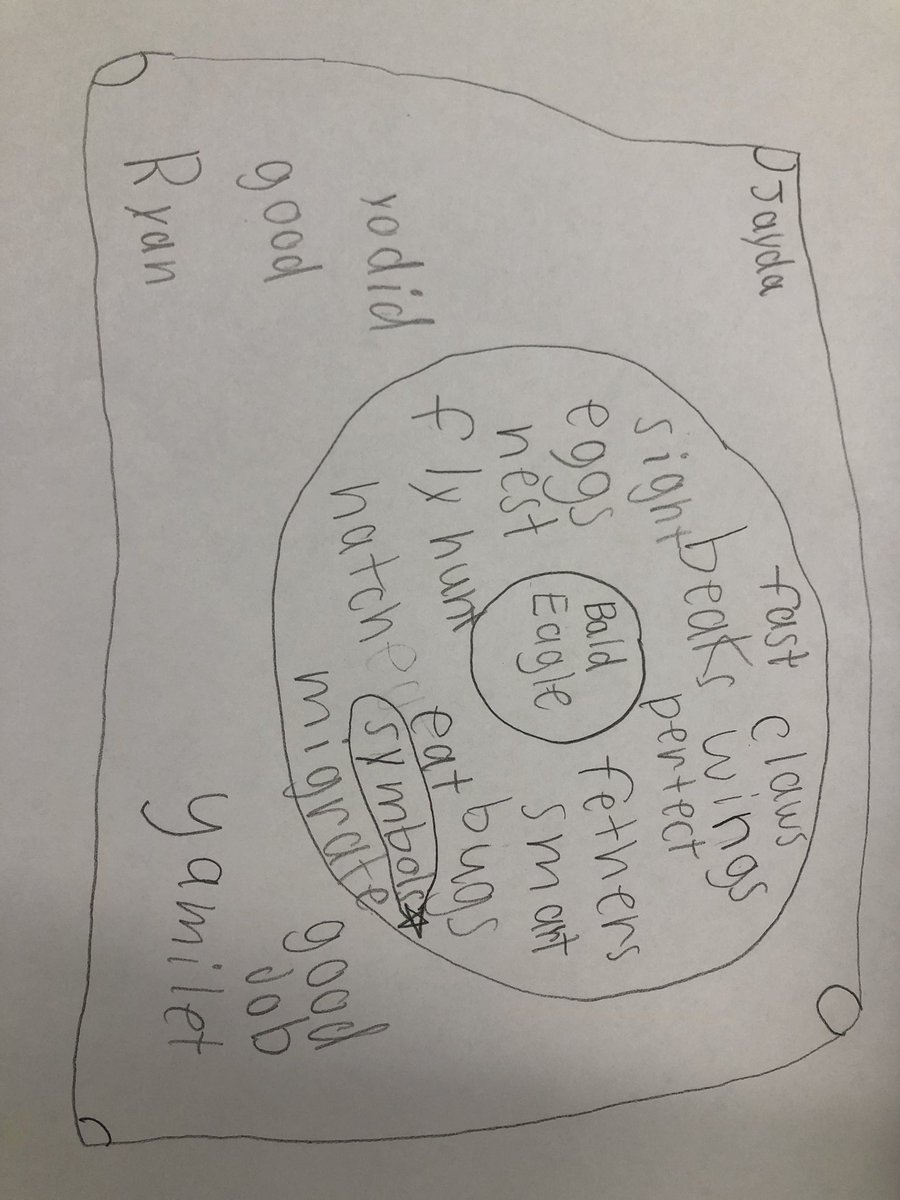 Jayda
fast claws
beaks wings
sight pertect
eggs
nest
Bald
Eagle
fethers
smart
fly hunt
eat bugs
hatch
symbols
migrate
yodid
good
Ryan
good
job
yamilet